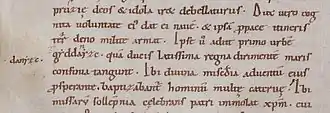 deos & idola iræ debellaturus. Dux uero cog
nita uoluntate ei' dat ei naue, & ipsa prpace itineris
ter deno milite armat. Ipse u adiit primo urbe
danzc.
gyddanyzc. quā ducis latissima regna dirimente maris
confinia tangunt. Ibi diuina mīsedia aduentū eius
psperante, baptizabant hominū multe caterue. Ibi
missarū sollepnia celebrans patri immolat xpm. cui